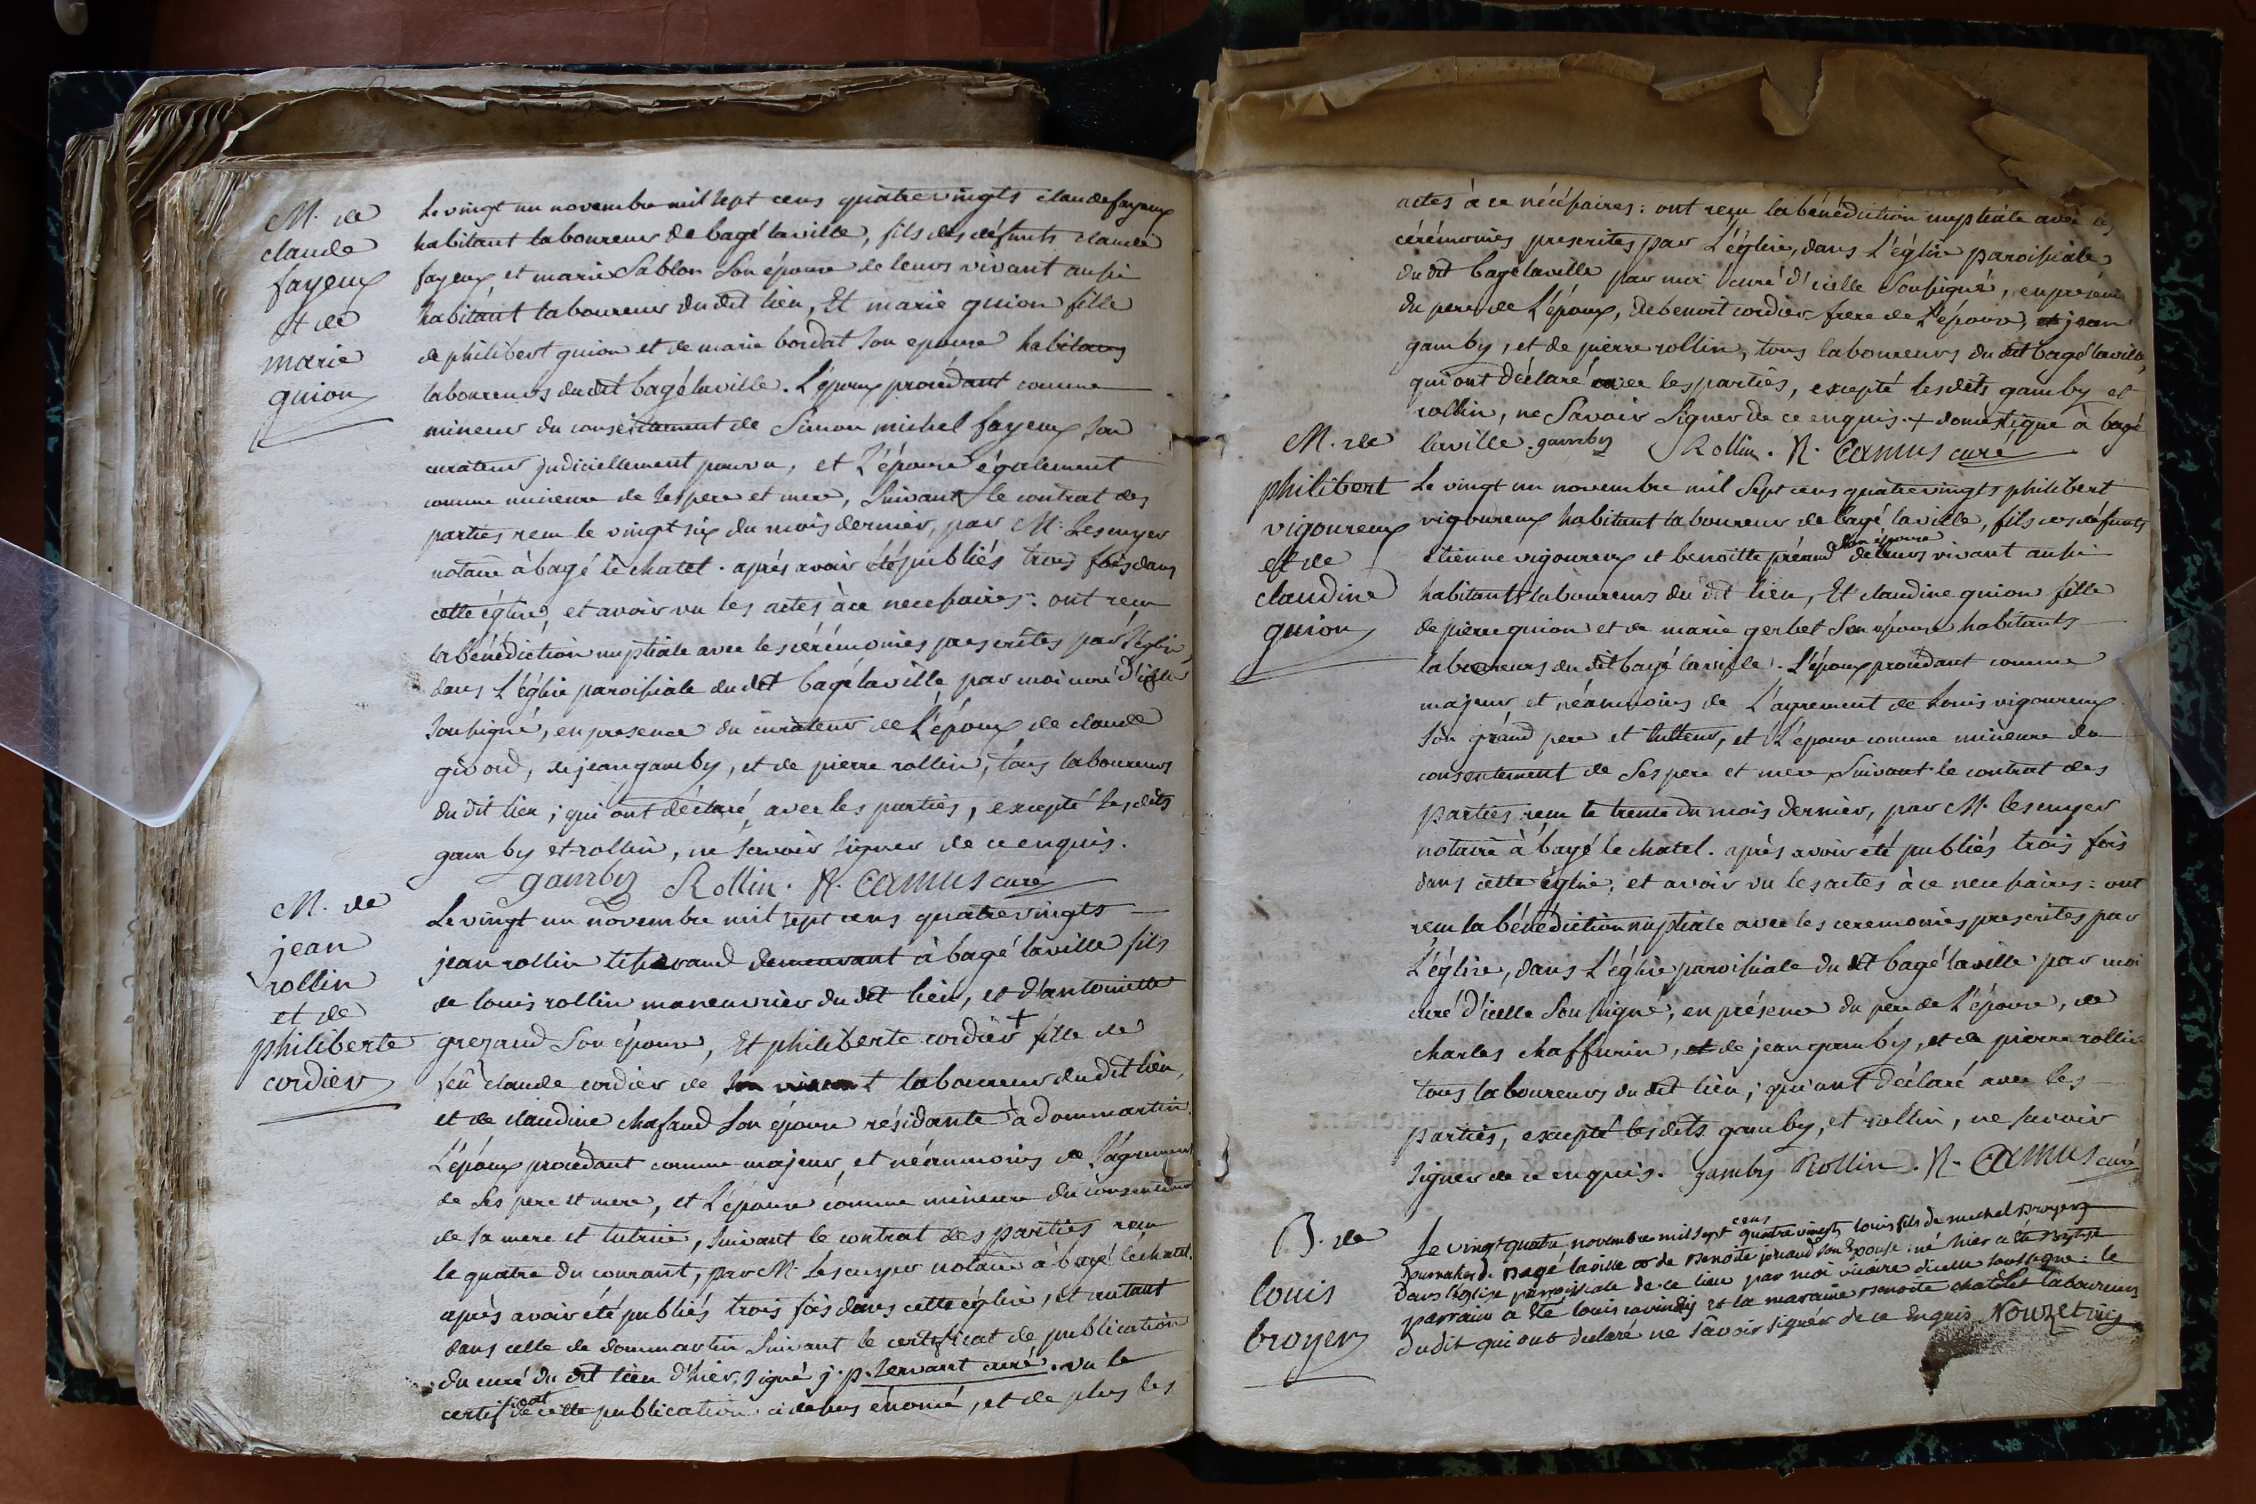 M. de
claude
fayeux
et de
marie
guion
Le vingt un novembre mil sept cens quatrevingts claude fayeux
habitant laboureur de bagé laville, fils des défunts claude
fayeux et marie Sablon Son épouse de leurs vivant aussi
habitant laboureur du dit lieu, Et marie guion fille
de philibert guion et de marie bordat Son epouse habitans
laboureurs du dit bagé laville. L'époux procédant comme
mineur du consentement de Simon michel fayeux Son
curateur judiciellement pourvu, et L'épouse également
comme mineure de Ses pere et mere, Suivant le contrat des
parties recu le vingt six du mois dernier, par M. Lescuyer
notaire à bagé le chatel. aprés avoir étés publiés trois fois dans
cette église, et avoir vu les actes à ce necessaires: ont reçu
la bénédiction nuptiale avec les cérémonies prescrites par L'église
dans L'église paroissiale du dit bagé laville par moi curé d'icelle
Soussigné, en presence du curateur de L'époux de claude
givord, de jean gamby, et de pierre rollin, tous laboureurs
du dit lieu; qui ont déclaré, avec les parties, excepté lesdits
gamby et rollin, ne Savoir Signer de ce enquis.
gamby Rollin. N. Camus curé
M. de
jean
rollin
et de
philiberte
cordier
Le vingt un novembre mil sept cens quatrevingts
jean rollin tisserand demeurant à bagé laville fils
de louis rollin maneuvrier du dit lieu, et d'antoinette
grezaud Son épouse, Et philiberte cordier + fille de
feû claude cordier de Son vivant laboureur du dit lieu,
et de claudine chafaud Son épouse résidante à dommartin.
L'époux procédant comme majeur, et néanmoins de L'agrement
de Ses pere et mere, et L'épouse comme mineure du consentement
de Sa mere et tutrice, Suivant le contrat des parties recu
le quatre du courant, par M. Lescuyer notaire à bagé le chatel.
aprés avoir été publiés trois fois dans cette église, et autant
dans celle de dommartin Suivant le certificat de publication
du curé du dit lieu d'hier, Signé j. p. Servant curé. vu le
certificat de cette publication ci dessus énoncé, et de plus les
actes à ce nécéssaires: ont reçu la bénédiction nuptiale avec les
cérémonies prescrites par L'église, dans L'église paroissiale
du dit bagé laville par moi curé d'icelle Soussigné, en présence
du pere de L'époux, de benoit cordier frere de L'épouse, de jean
gamby, et de pierre rollin, tous laboureurs du dit bagé laville,
qui ont déclaré avec les parties, excepté lesdits gamby et
rollin, ne Savoir Signer de ce enquis. + domestique à bagé
laville. gamby Rollin. N. Camus curé
M. de
philibert
vigoureux
et de
claudine
guion
Le vingt un novembre mil Sept cens quatrevingts philibert
vigoureux habitant laboureur de bagé laville, fils des défunts
étienne vigoureux et benoitte préaud Son épouse de leurs vivant aussi
habitants laboureurs du dit lieu, Et claudine guion fille
de pierre guion et de marie gerbet Son épouse habitants
laboureurs du dit bagé laville. L'époux procédant comme
majeur et néanmoins de L'agrement de Louis vigoureux
Son grand pere et tutteur, et L'épouse comme mineure du
consentement de Ses pere et mere Suivant le contrat des
parties recu le trente du mois dernier, par M. lescuyer
notaire à bagé le chatel. aprés avoir été publiés trois fois
dans cette église, et avoir vu les actes à ce necessaires: ont
recu la bénédiction nuptiale avec les ceremonies prescrites par
L'église, dans L'église paroissiale du dit bagé laville par moi
curé d'icelle Soussigné, en présence du pere de L'épouse, de
charles chaffurin, de jean gamby, et de pierre rollin
tous laboureurs du dit lieu; qui ont déclaré avec les
parties, excepté lesdits gamby, et rollin, ne Savoir
Signer de ce enquis. gamby Rollin. N. Camus curé
B. de
louis
broyer
Le vingt quatre novembre mil sept cens quatre vingts louis fils de michel Broyer
journalier de Bagé laville et de Benoite jouaud Son Epouse né hier a été Batisé
dans l'église paroissiale de ce lieu par moi vicaire d'icelle soussigné: le
parrain a été louis et la maraine Benoite chatelet laboureurs
dudit qui ont declaré ne sçavoir signér de ce Enquis Nouzet vic